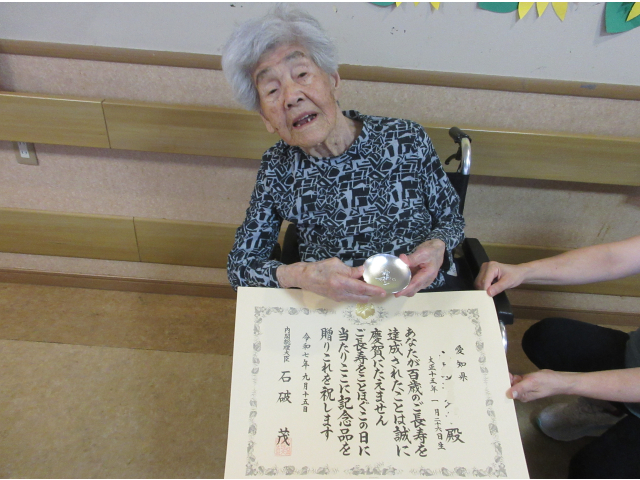 愛知県
殿
大正十五年 一月二十六日生
あなたが百歳のご長寿を
達成されたことは誠に
慶賀にたえません
ご長寿をことほぐこの日に
当たりここに記念品を
贈りこれを祝します
令和七年九月十五日
内閣総理大臣 石破 茂